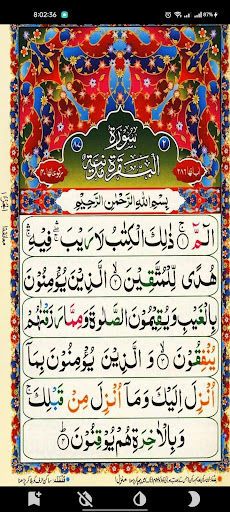 8:02:36
87%
سُوْرَةُ
الْبَقَرَةِ مَدَنِيَّةٌ
بِسْمِ اللّٰهِ الرَّحْمٰنِ الرَّحِيْمِ
الٓمّٓ ۚ﴿۱﴾ ذٰلِكَ الْكِتٰبُ لَا رَيْبَ ۛ فِيْهِ ۛ
هُدًى لِّلْمُتَّقِيْنَ ﴿۲﴾ الَّذِيْنَ يُؤْمِنُوْنَ
بِالْغَيْبِ وَيُقِيْمُوْنَ الصَّلٰوةَ وَمِمَّا رَزَقْنٰهُمْ
يُنْفِقُوْنَ ﴿۳﴾ وَالَّذِيْنَ يُؤْمِنُوْنَ بِمَاۤ
اُنْزِلَ اِلَيْكَ وَمَاۤ اُنْزِلَ مِنْ قَبْلِكَ ۚ
وَبِالْاٰخِرَةِ هُمْ يُوْقِنُوْنَ ﴿۴﴾